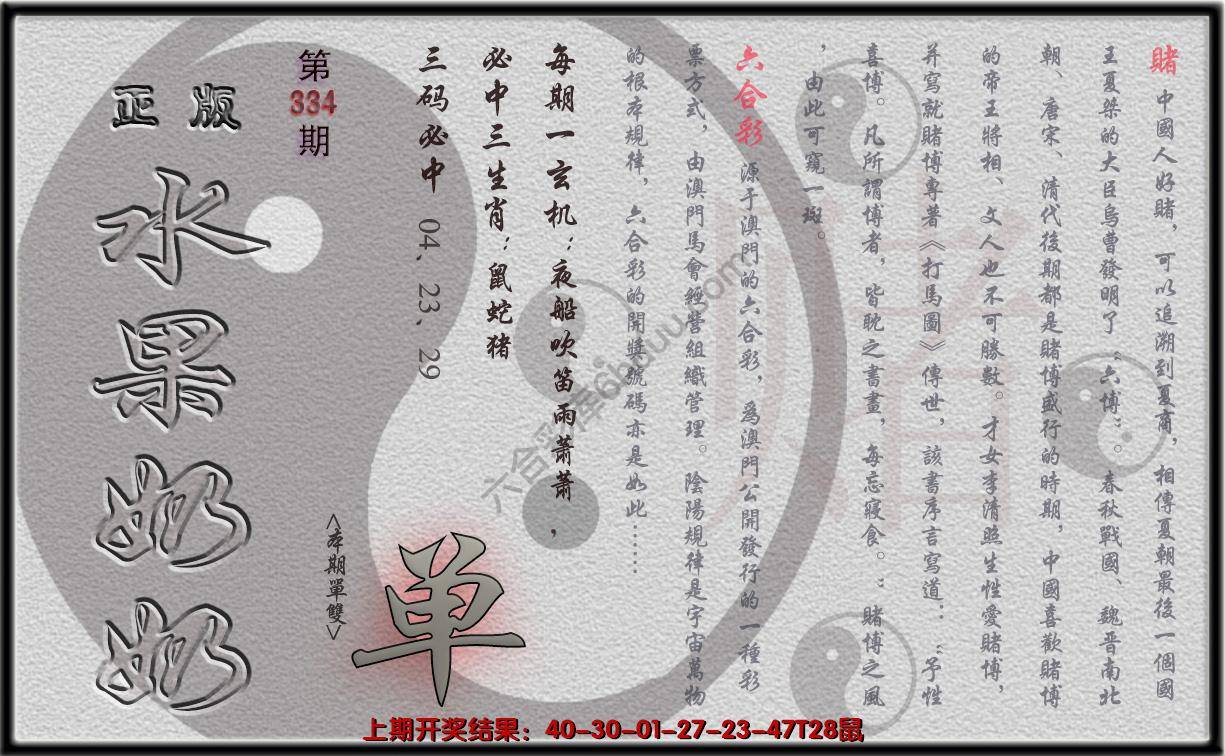 賭 中國人好賭，可以追溯到夏商，相傳夏朝最後一個國
王夏桀的大臣烏曹發明了“六博”。春秋戰國、魏晋南北
朝、唐宋、清代後期都是賭博盛行的時期，中國喜歡賭博
的帝王將相、文人也不可勝數。才女李清照生性愛賭博，
并寫就賭博專著《打馬圖》傳世，該書序言寫道：“予性
喜博。凡所謂博者，皆耽之書畫，每忘寢食。”賭博之風
，由此可窺一斑。
六合彩 源于澳門的六合彩，爲澳門公開發行的一種彩
票方式，由澳門馬會經營組織管理。陰陽規律是宇宙萬物
的根本規律，六合彩的開獎號碼亦是如此……
每期一玄机：夜船吹笛雨萧萧，
必中三生肖：鼠蛇猪
三码必中 04、23、29
第334期
正版
水果奶奶
<本期單雙>
单
上期开奖结果：40-30-01-27-23-47T28鼠